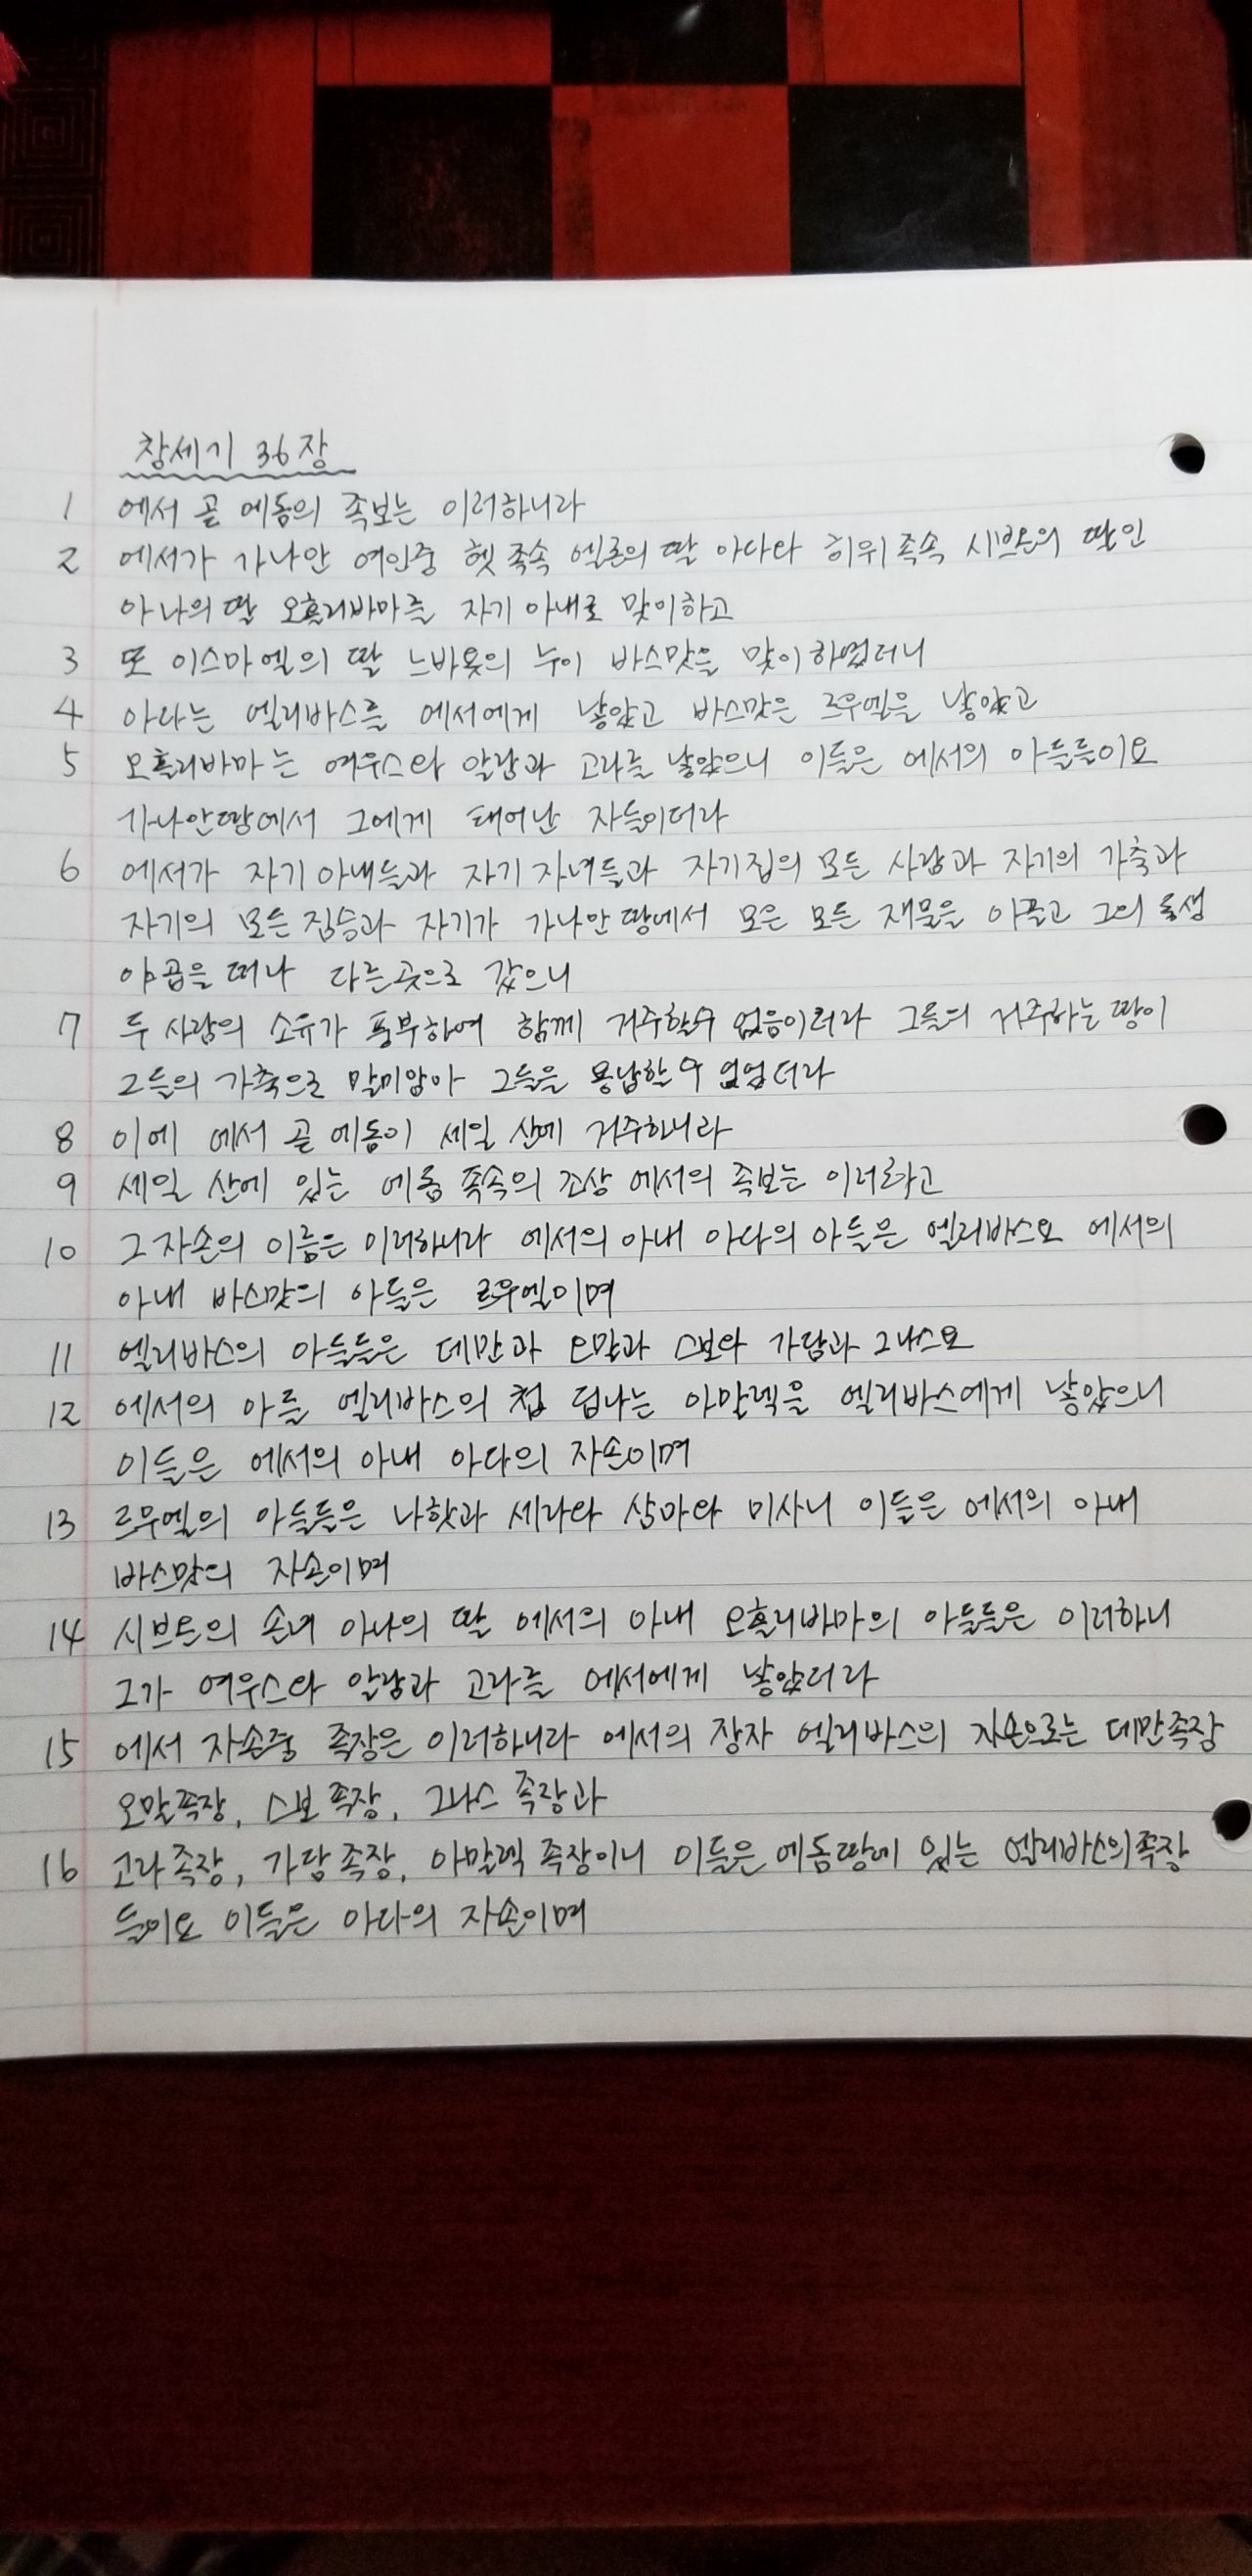 창세기 36장
1 에서 곧 에돔의 족보는 이러하니라
2 에서가 가나안 여인중 헷 족속 엘론의 딸 아다와 히위 족속 시브온의 딸인
아나의 딸 오홀리바마를 자기 아내로 맞이하고
3 또 이스마엘의 딸 느바욧의 누이 바스맛을 맞이하였더니
4 아다는 엘리바스를 에서에게 낳았고 바스맛은 르우엘을 낳았고
5 오홀리바마는 여우스와 얄람과 고라를 낳았으니 이들은 에서의 아들들이요
가나안땅에서 그에게 태어난 자들이더라
6 에서가 자기 아내들과 자기 자녀들과 자기집의 모든 사람과 자기의 가축과
자기의 모든 짐승과 자기가 가나안 땅에서 모은 모든 재물을 이끌고 그의 동생
야곱을 떠나 다른곳으로 갔으니
7 두 사람의 소유가 풍부하여 함께 거주할수 없음이러라 그들의 거주하는 땅이
그들의 가축으로 말미암아 그들을 용납할 수 없었더라
8 이에 에서 곧 에돔이 세일 산에 거주하니라
9 세일 산에 있는 에돔 족속의 조상 에서의 족보는 이러하고
10 그 자손의 이름은 이러하니라 에서의 아내 아다의 아들은 엘리바스요 에서의
아내 바스맛의 아들은 르우엘이며
11 엘리바스의 아들들은 데만과 오말과 스보와 가담과 그나스요
12 에서의 아들 엘리바스의 첩 딤나는 아말렉을 엘리바스에게 낳았으니
이들은 에서의 아내 아다의 자손이며
13 르우엘의 아들들은 나핫과 세라와 삼마와 미사니 이들은 에서의 아내
바스맛의 자손이며
14 시브온의 손녀 아나의 딸 에서의 아내 오홀리바마의 아들들은 이러하니
그가 여우스와 얄람과 고라를 에서에게 낳았더라
15 에서 자손중 족장은 이러하니라 에서의 장자 엘리바스의 자손으로는 데만족장
오말족장, 스보 족장, 그나스 족장과
16 고라 족장, 가담 족장, 아말렉 족장이니 이들은 에돔땅에 있는 엘리바스의 족장
들이요 이들은 아다의 자손이며